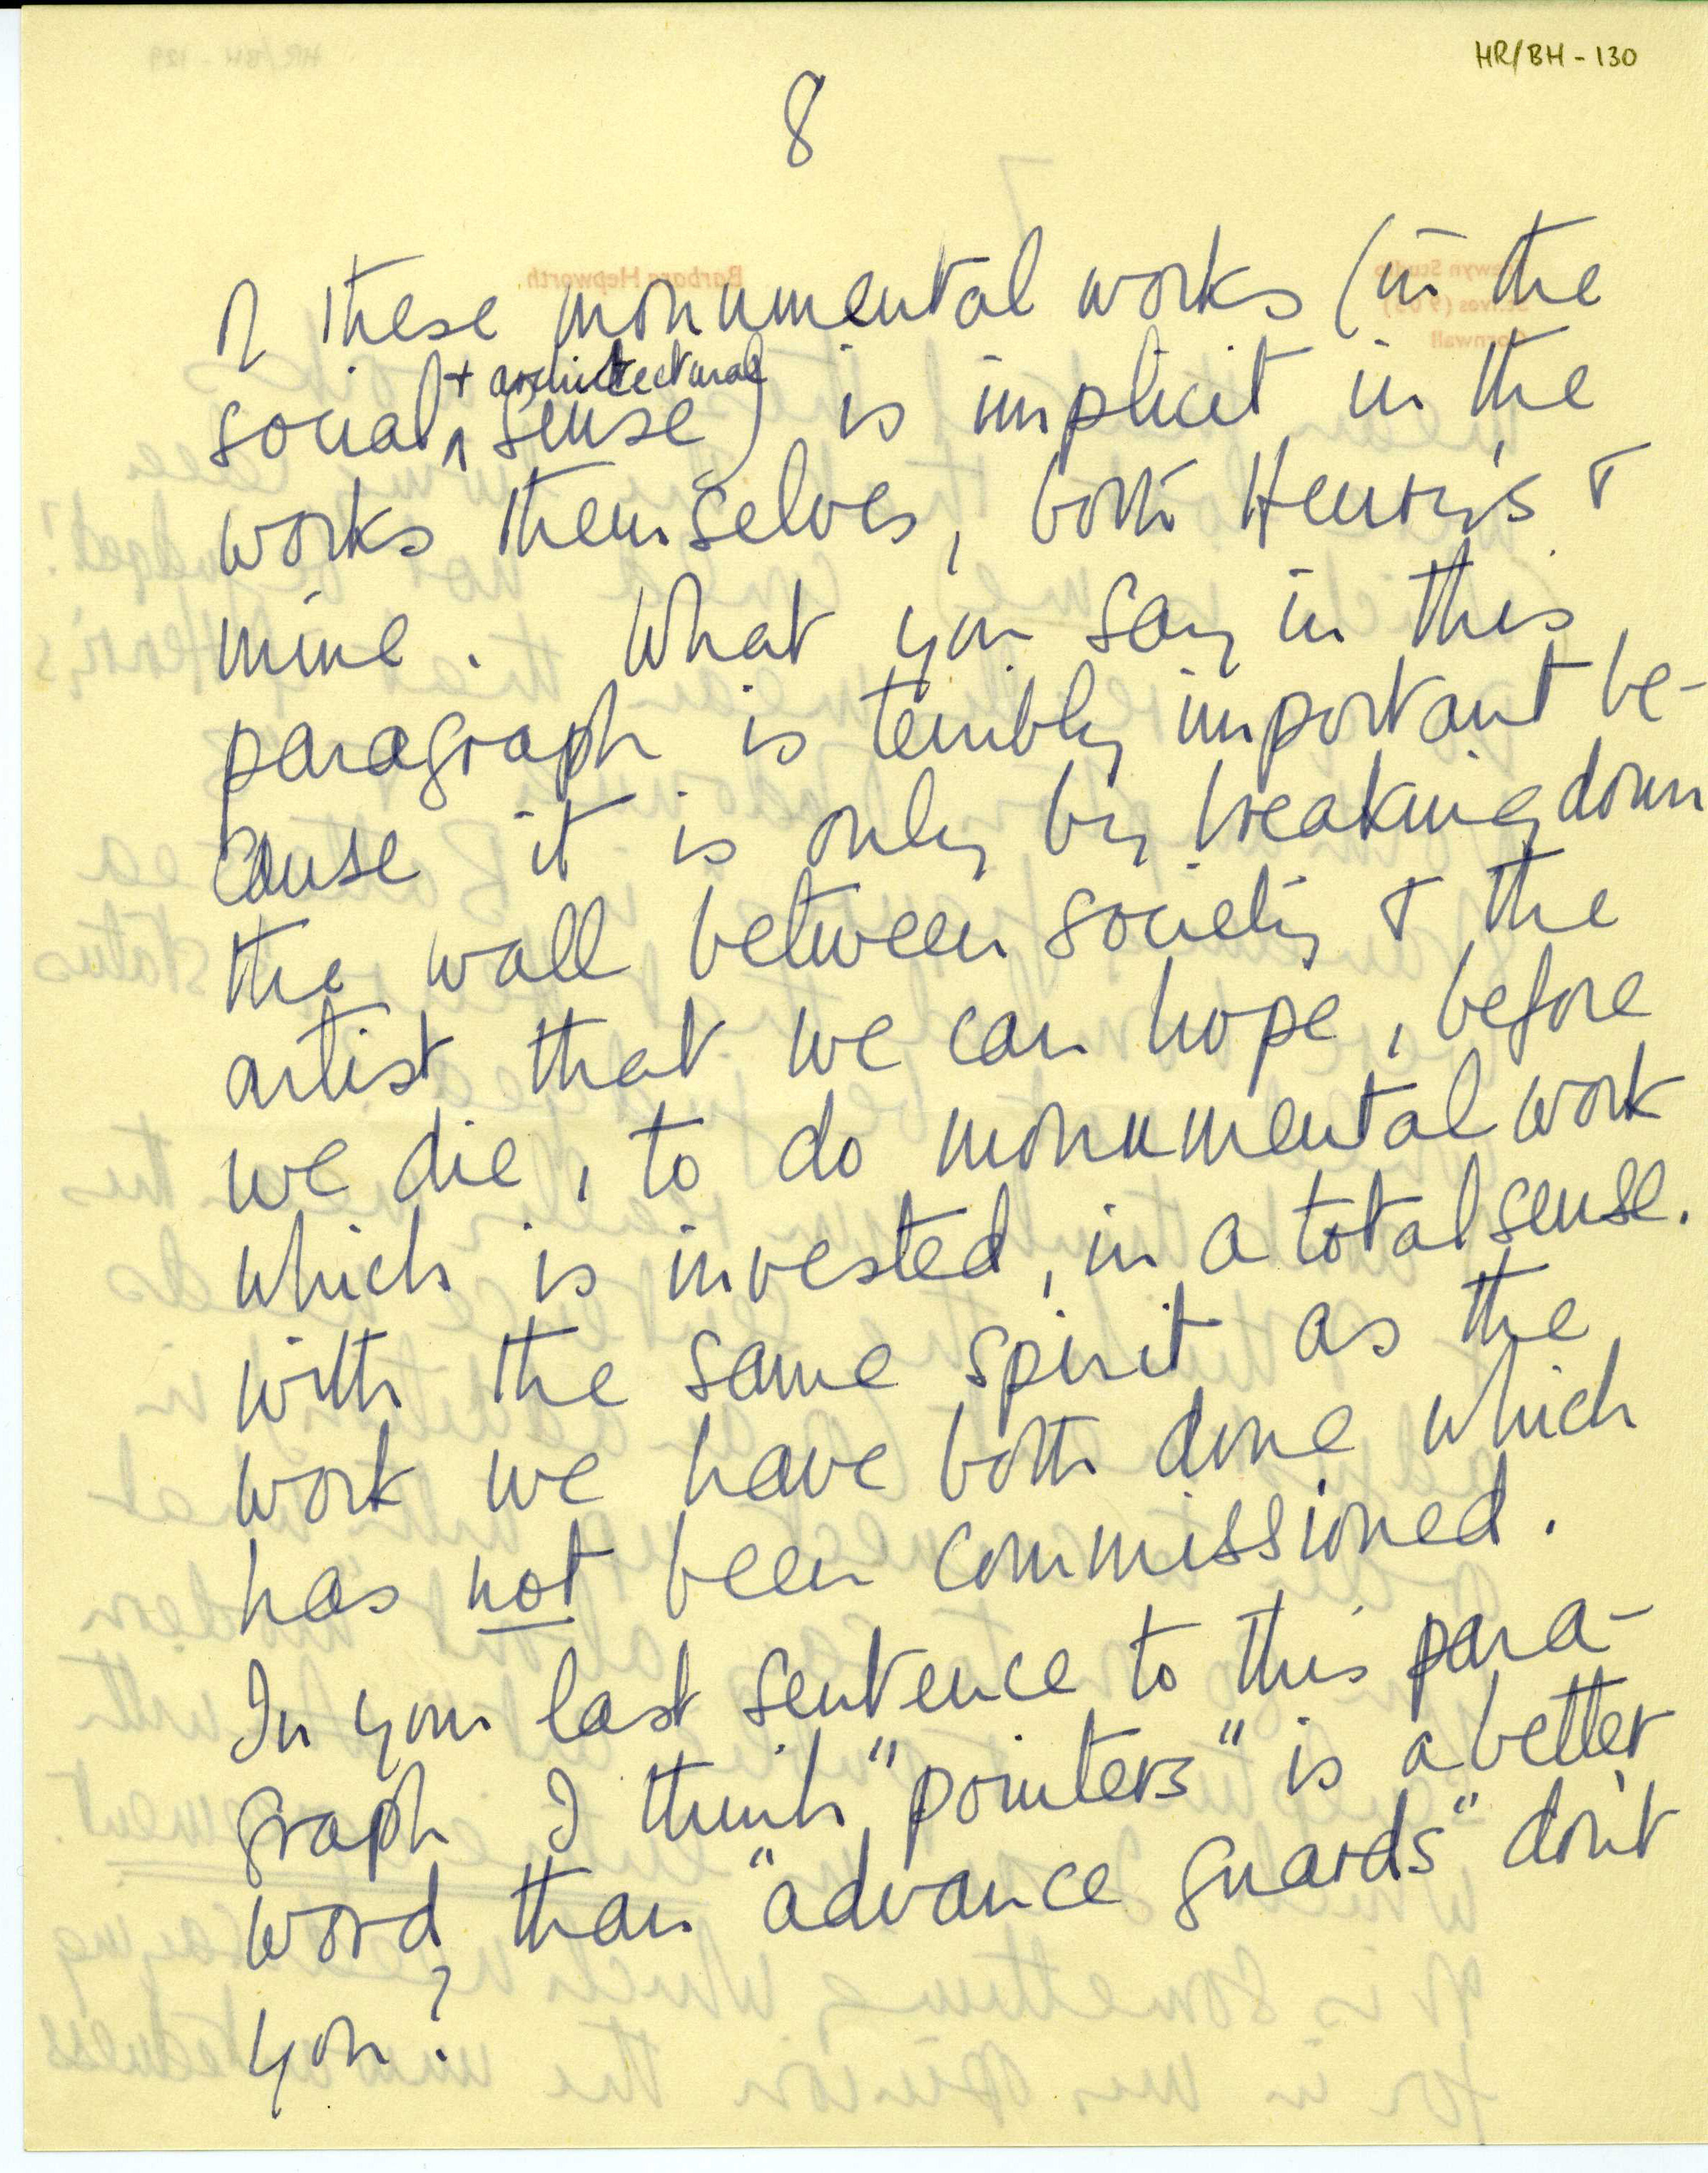 HR/BH - 130
8
of these monumental works (in the
social + architectural sense) is implicit in the
works themselves, both Henry's &
mine. What you say in this
paragraph is terribly important be-
cause it is only by breaking down
the wall between society & the
artist that we can hope, before
we die, to do monumental work
which is invested, in a total sense.
with the same spirit as the
work we have both done which
has not been commissioned.
In your last sentence to this para-
graph I think "pointers" is a better
word than "advance guards" don't
you?
Barbara Hepworth